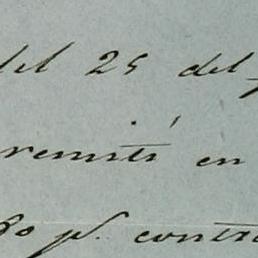 del 25 del
remití en
80 p.s contra